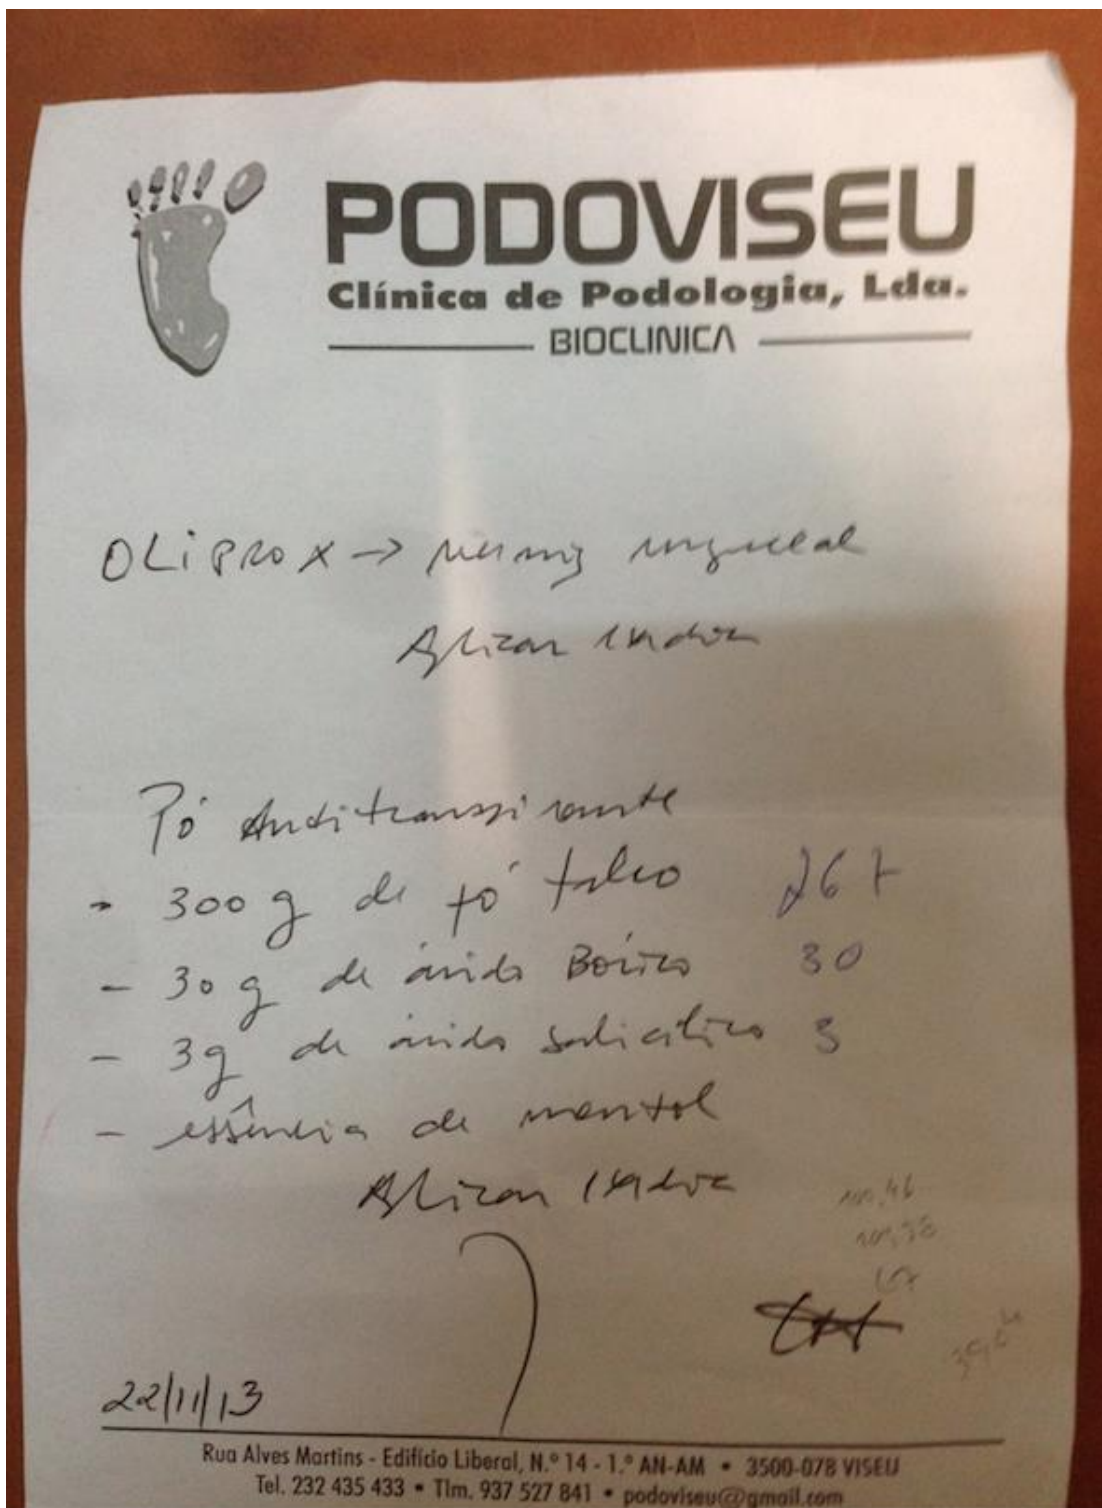 PODOVISEU
Clínica de Podologia, Lda.
BIOCLINICA
OLiPROX → verniz ungueal
Aplicar 1x/dia
Pó Antitranspirante
- 300 g de pó talco 267
- 30 g de ácido Bórico 30
- 3g de ácido salicílico 3
- essência de mentol
Aplicar 1x/dia
22/11/13
Rua Alves Martins - Edifício Liberal, N.º 14 - 1.º AN-AM • 3500-078 VISEU
Tel. 232 435 433 • Tlm. 937 527 841 • podoviseu@gmail.com